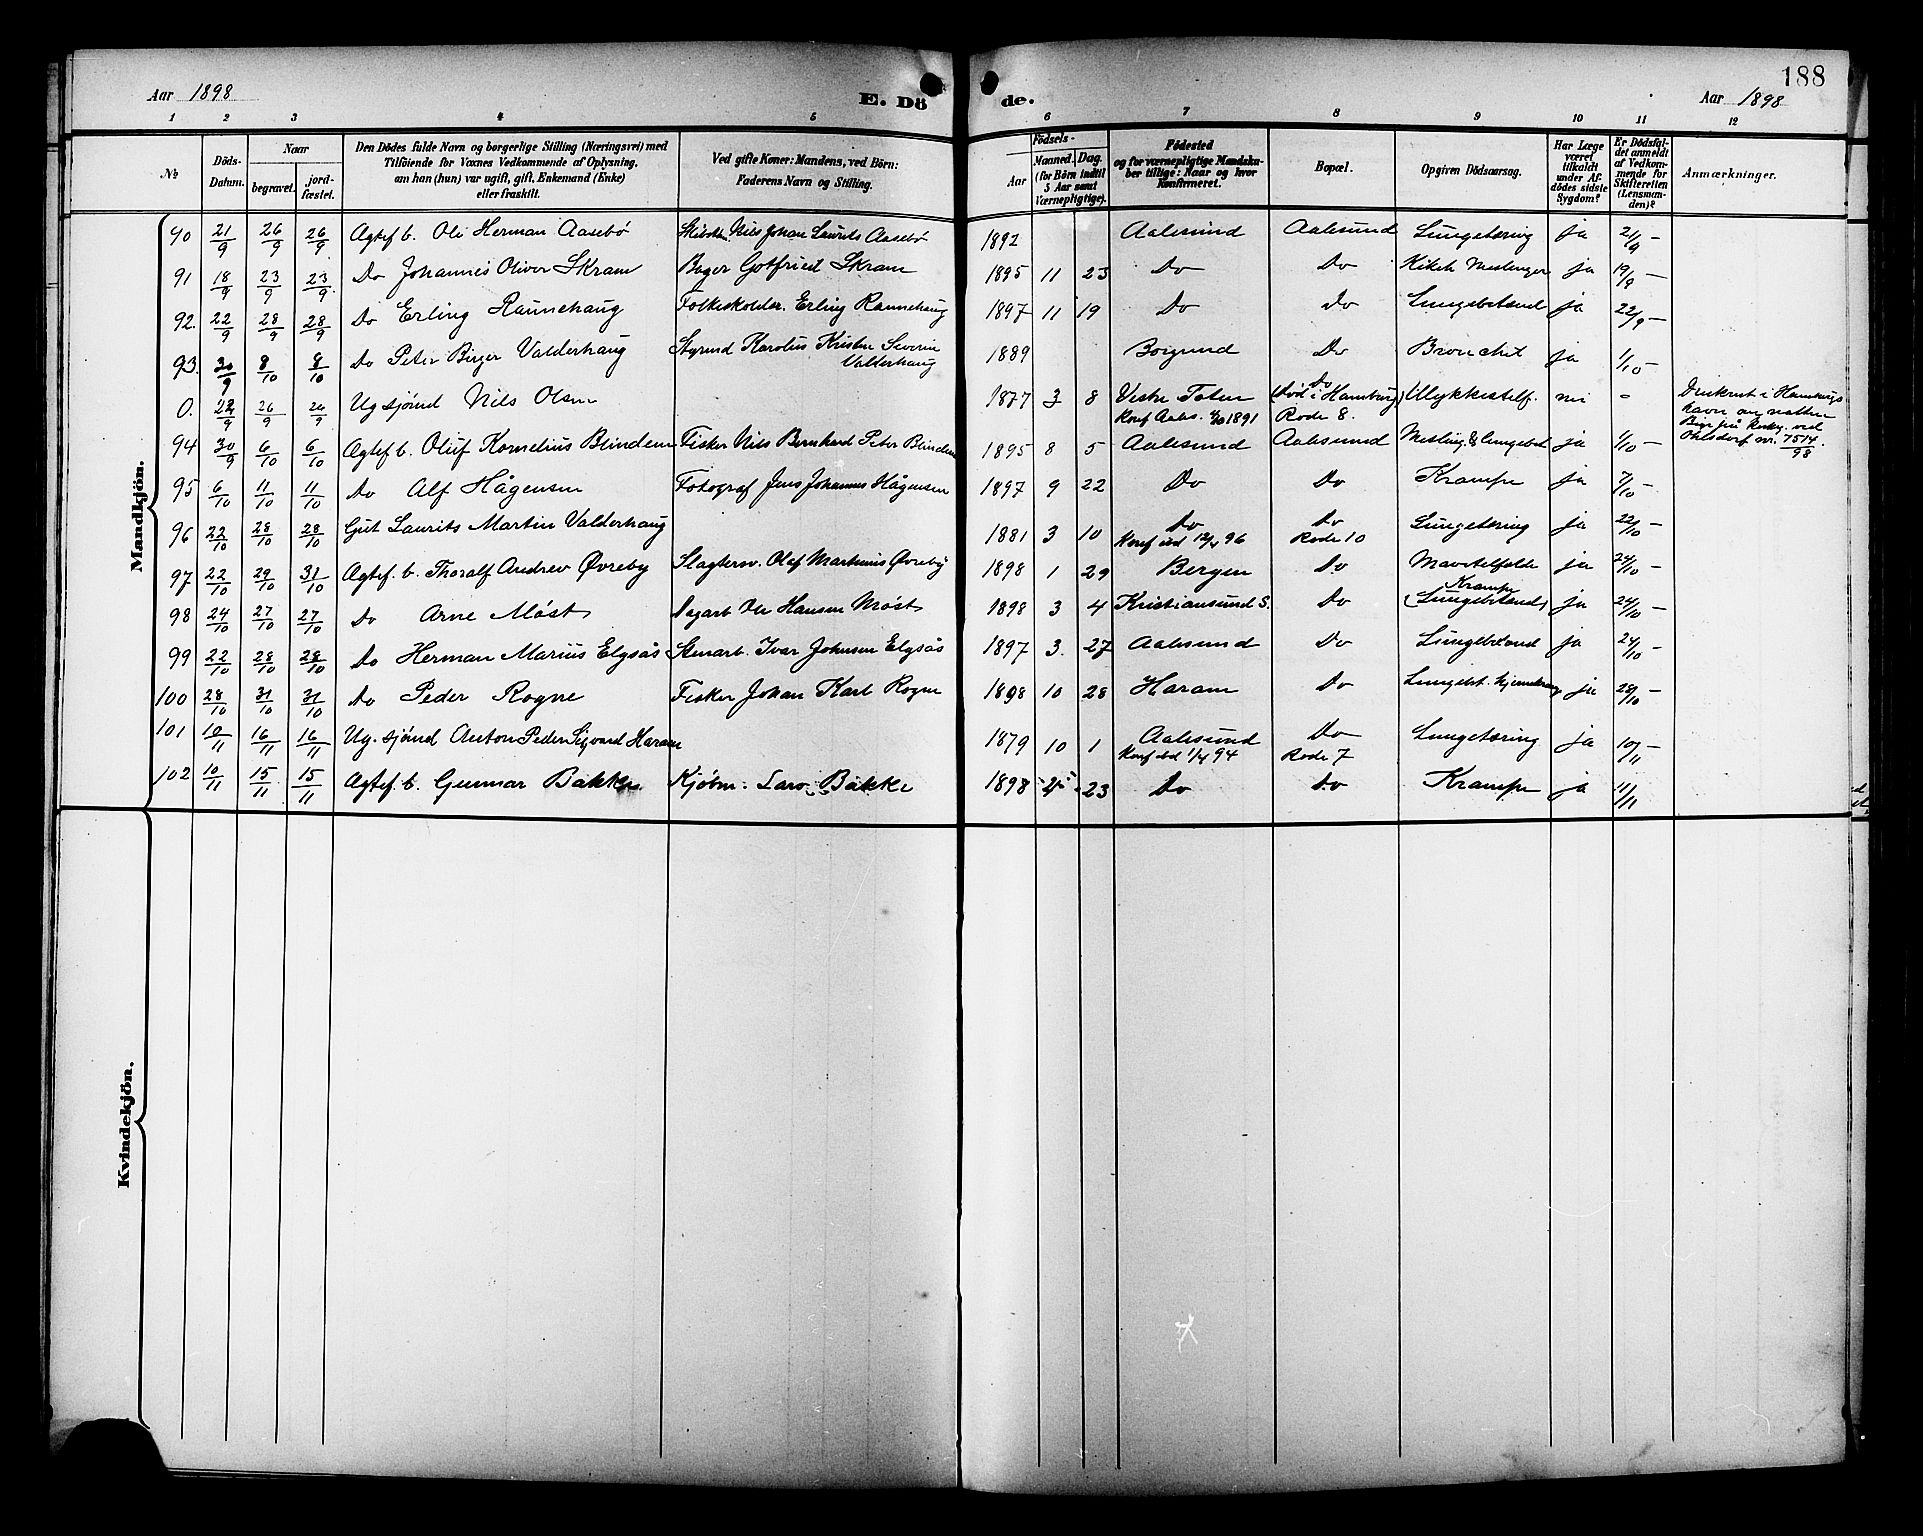 188
Aar 1898
E. Dö
de.
Aar 1898
1 2 3 4 5 6 7 8 9 10 11 12
№
Döds-
Datum.
Naar
begravet.
jord-
fæstet.
Den Dödes fulde Navn og borgerlige Stilling (Næringsvei) med
Tilföiende for Voxnes Vedkommende af Oplysning,
om han (hun) var ugift, gift, Enkemand (Enke)
eller fraskilt.
Ved gifte Koner: Mandens, ved Börn:
Faderens Navn og Stilling.
Födsels-
Aar
Maaned. Dag.
(for Börn indtil
5 Aar samt
Værnepligtige).
Födested
og for værnepligtige Mandska-
ber tillige: Naar og hvor
Konfirmeret.
Bopæl.
Opgiven Dödsaarsag.
Har Læge
været
tilkaldt
under Af-
dödes sidste
Sygdom?
Er Dödsfal-
det anmeldt
af Vedkom-
mende for
Skifteretten
(Lensman-
den)?
Anmærkninger.
Mandkjön.
90 21/9 26/9 26/9 Ægtef b. Ole Herman Aasebö Nils Johan Laurits Aasebö 1892 Aalesund Aalesund Lungetæring ja 21/9 -
91 18/9 23/9 23/9 Do Johannes Oliver Skram Bager Gotfried Skram 1895 11 23 Do Do Kikh Meslinger ja 19/9 -
92. 22/9 28/9 28/9 Do Erling Rannehaug Folkeskolelær. Erling Rannehaug 1897 11 19 Do Do Lungebetænd ja 22/9 -
93. 30/9 8/10 8/10 Do Peter Birger Valderhaug Styrmd Karolus Kristen Severin
Valderhaug 1889 Borgund Do Bronchit ja 1/10 -
0. 22/9 26/9 26/9 Ug sjömd Nils Olsen 1877 3 8 Vestre Toten
Konf Aales. 4/10 1891 Do
(Död i Hamburg)
Rode 8. Ulykkestilf. nei - Druknet i Hamburgs
havn
ved
Ohlsdorf nr. 7514/98
94 30/9 6/10 6/10 Ægtef b. Oluf Kornelius Blindem Fisker Nils Bernhard Peter Blindem 1895 8 5 Aalesund Aalesund Mesling. & Lungebet ja 1/10 -
95 6/10 11/10 11/10 Do Alf Hågensen Fotograf Jens Johannes Hågensen 1897 9 22 Do Do Krampe ja 7/10 -
96 22/10 28/10 28/10 Gut Laurits Martin Valderhaug 1881 3 10 Do
Konf sted 12/4 96 Do
Rode 10 Lungetæring ja 22/10 -
97 22/10 29/10 31/10 Ægtef. b. Thoralf Andrev Øvreby Slagtersv. Olaf Martinius Øvreby 1898 1 29 Bergen Do Mavetilfælde ja 24/10 -
98 24/10 27/10 27/10 Do Arne Möst Dagarb Ole Hansen Möst 1898 3 4 Kristiansund S. Do Krampe
(Lungebetænd) ja 24/10 -
99 22/10 28/10 28/10 Do Herman Marius Elgsås Stenarb. Ivar Johnsen Elgsås 1897 3. 27 Aalesund Do Lungebetænd ja 24/10 -
100 28/10 31/10 31/10 Do Peder Rogne Fisker Johan Karl Rogne 1898 10 28 Haram Do Lungebet. ja 28/10 -
101 10/11 16/11 16/11 Ug. sjömd Anton Peder Sigvard Haram 1879 10 1 Aalesund
Konf sted 1/4 94 Do
Rode 7 Lungetæring ja 10/11 -
102 10/11 15/11 15/11 Ægtef b. Gunnar Bakke Kjöbm. Lars Bakke 1898 23 Do Do Krampe ja 11/11
Kvindekjön.